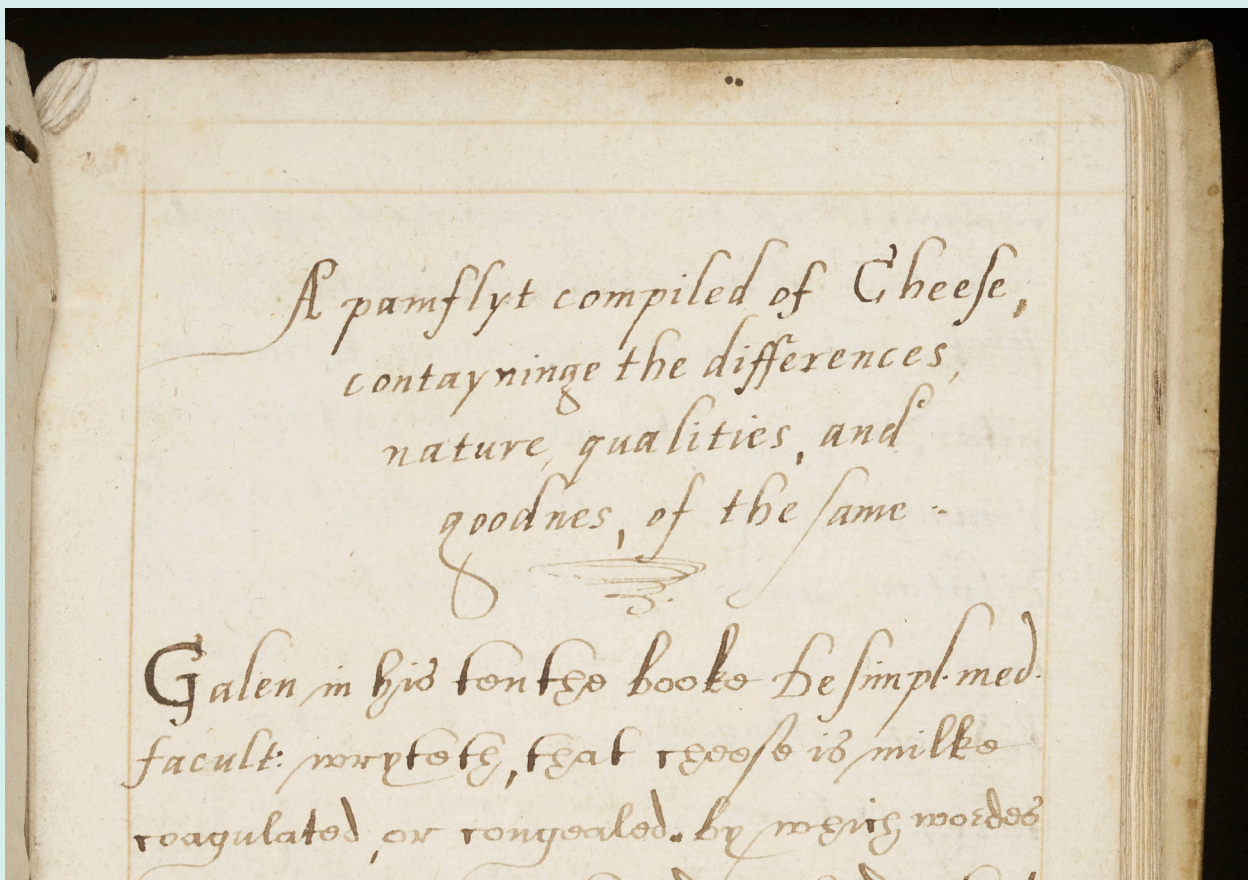 A pamflyt compiled of Cheese,
contayninge the differences,
nature, qualities, and
goodnes, of the same
Galen in his tenthe booke De simpl. med.
facult: wryteth, that cheese is milke
coagulated, or congealed. by which wordes